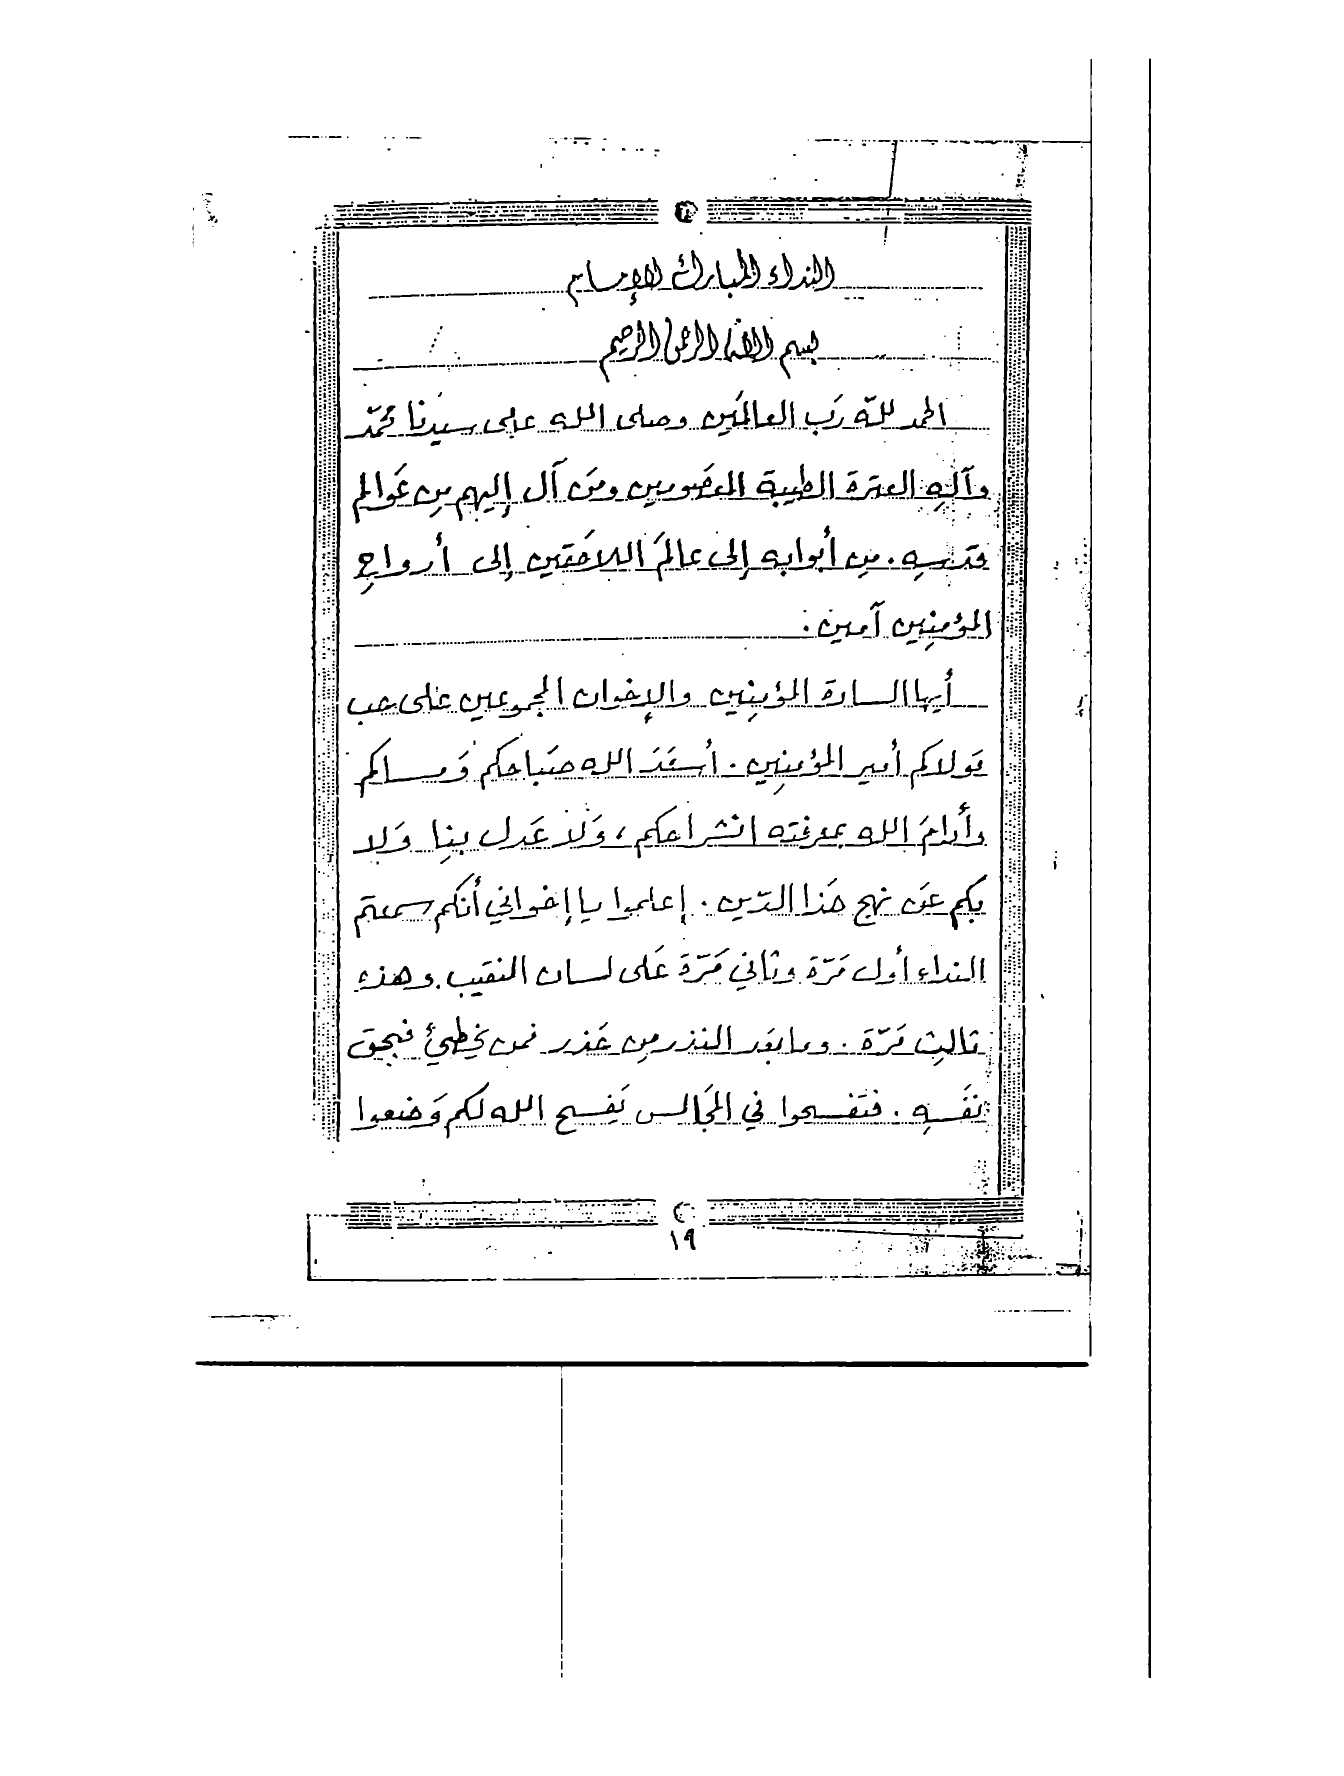 النداء المبارك للإمام
بسم الله الرحمن الرحيم
الحمد للّه رَب العالمَين وصلى الله على سيدنَا محمّد
وآلهِ العترة الطيبة المعصَومين ومَن آل إليهم مِن عَوالم
قدسِه . مِن أبوابه إلى عالمَ اللاحَقين إلى أرواحِ
المؤمنِين آمين .
أيها السادة المؤمنِين والإخوان المجموعين على حب
مَولاكم أمير المؤمنِين . أسعَدَ الله صَباحكم وَمساكم
وأدامَ الله بمعرفته انشراحكم ، وَلا عَدل بنِا وَلا
بكم عَن نهج هَذا الدّين . إعلموا يا إخواني أنكم سمعتم
النداء أول مَرّة وثاني مَرّة عَلى لسان النقيب . وهذه
ثالثِ مَرّة . وما بعَد النذر مِن عَذر فمن يخطِئ فبحق
نفَسِه . فتفَسحوا في المجَالس يَفسح الله لكم وَضعوا
١٩